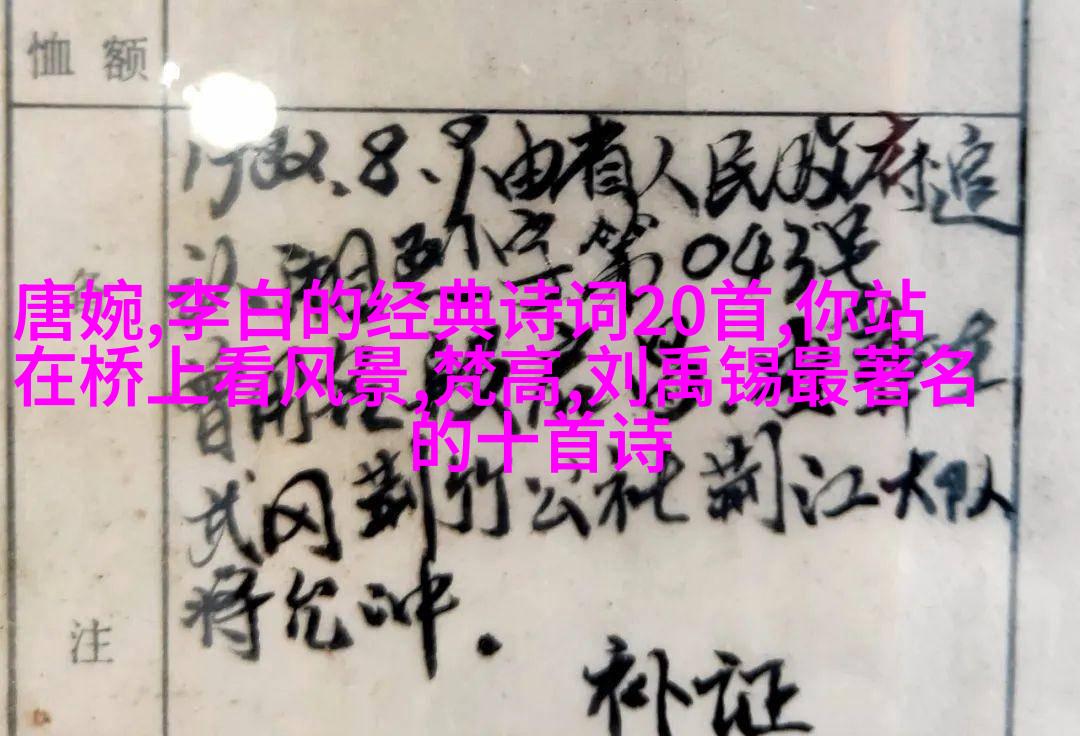 恤额
1982.8.9由省人民政府追
认.湘政优字第043号
唐婉,李白的经典诗词20首,你站
在桥上看风景,梵高,刘禹锡最著名
的十首诗
武冈荆竹公社荆江大队
蒋允冲.
注
补证